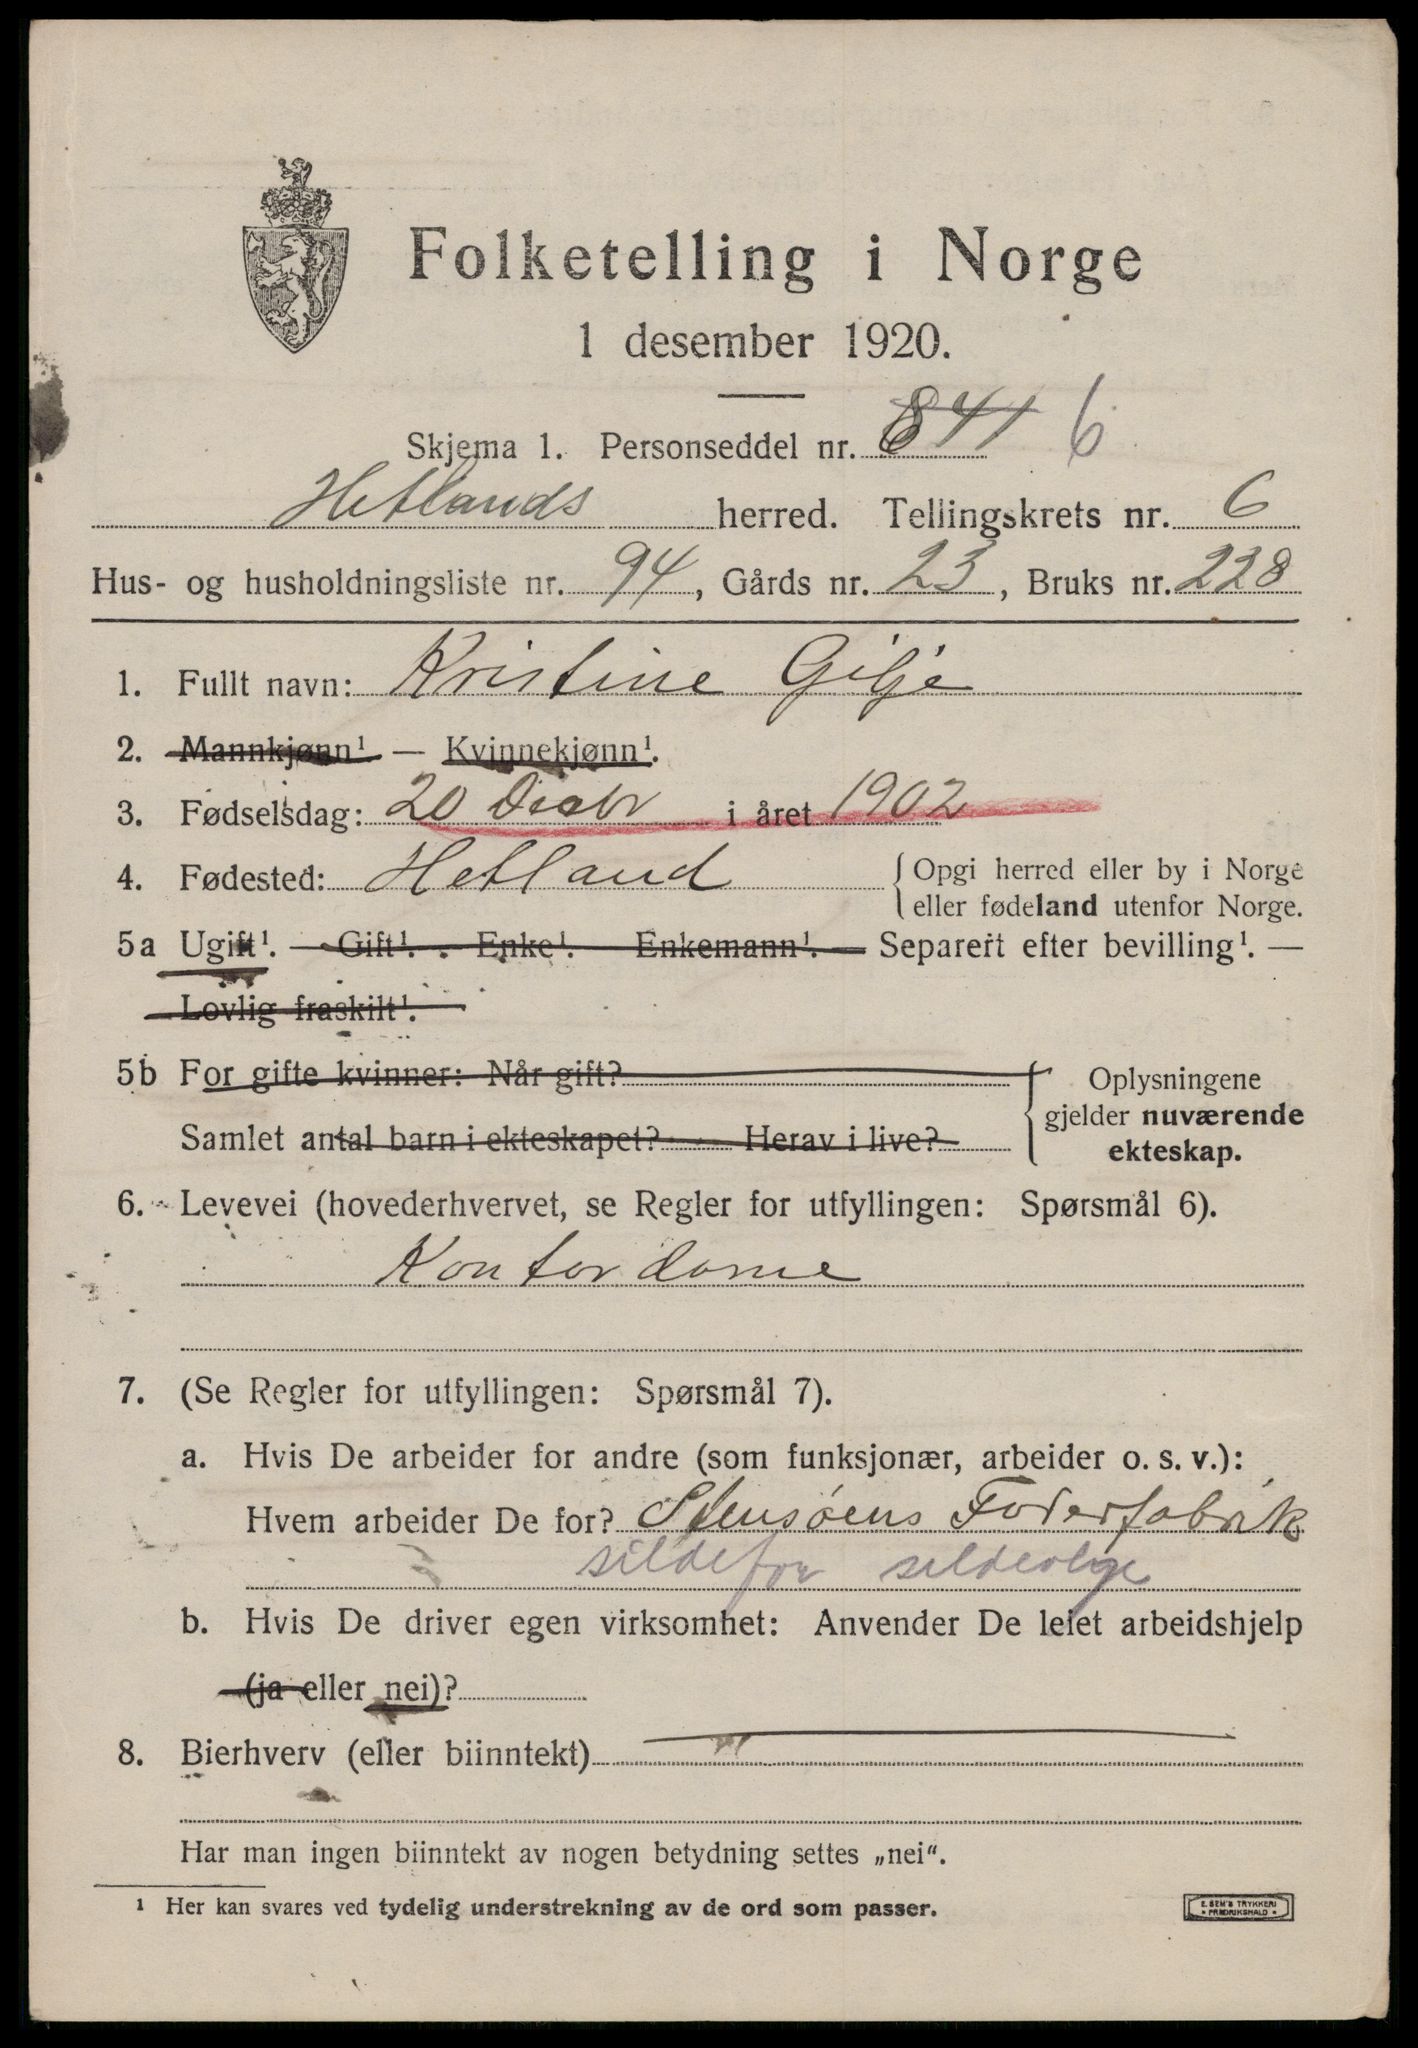 Folketelling i Norge
1 desember 1920.
Skjema 1. Personseddel nr. 841 6
Hetlands herred. Tellingskrets nr. 6
Hus- og husholdningsliste nr. 94, Gårds nr. 23, Bruks nr. 228
1. Fullt navn: Kristine Gilje
2. Mannkjønn¹ — Kvinnekjønn¹.
3. Fødselsdag: 20 i året 1902
4. Fødested: Hetland { Opgi herred eller by i Norge
eller fødeland utenfor Norge.
5a Ugift¹. — Gift¹. — Enke¹. — Enkemann¹. — Separert efter bevilling¹. —
Lovlig fraskilt¹.
5b For gifte kvinner: Når gift? { Oplysningene
gjelder nuværende
Samlet antal barn i ekteskapet? Herav i live?
ekteskap.
6. Levevei (hovederhvervet, se Regler for utfyllingen: Spørsmål 6).
Kontordame
7. (Se Regler for utfyllingen: Spørsmål 7).
a. Hvis De arbeider for andre (som funksjonær, arbeider o. s. v.):
Hvem arbeider De for? Stensøens Foderfabrik
sildefor sildeolge
b. Hvis De driver egen virksomhet: Anvender De leiet arbeidshjelp
(ja eller nei)?
8. Bierhverv (eller biinntekt)
Har man ingen biinntekt av nogen betydning settes „nei“.
¹ Her kan svares ved tydelig understrekning av de ord som passer.
E. SEM'S TRYKKERI
* FREDRIKSHALD *